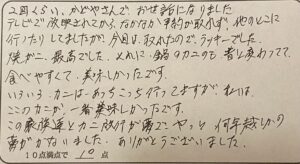 2回くらい、かどやさんで お世話になりました
テレビで放映されてから、なかなか予約が取れず、他のところに
行ったりしてましたが、今回は、取れたので、ラッキーでした
焼がに 最高でした。とくに、鍋のカニのも、身と変わってて
食べやすくて、美味しかったです。
いろいろ、カニは、あちこち行ってますが、私は、
ここのカニが、一番美味しかったです。
この家族達とカニ旅行が夢で、やっと 何年越しかの
夢がかないました。ありがとうございました。
10点満点で 10 点